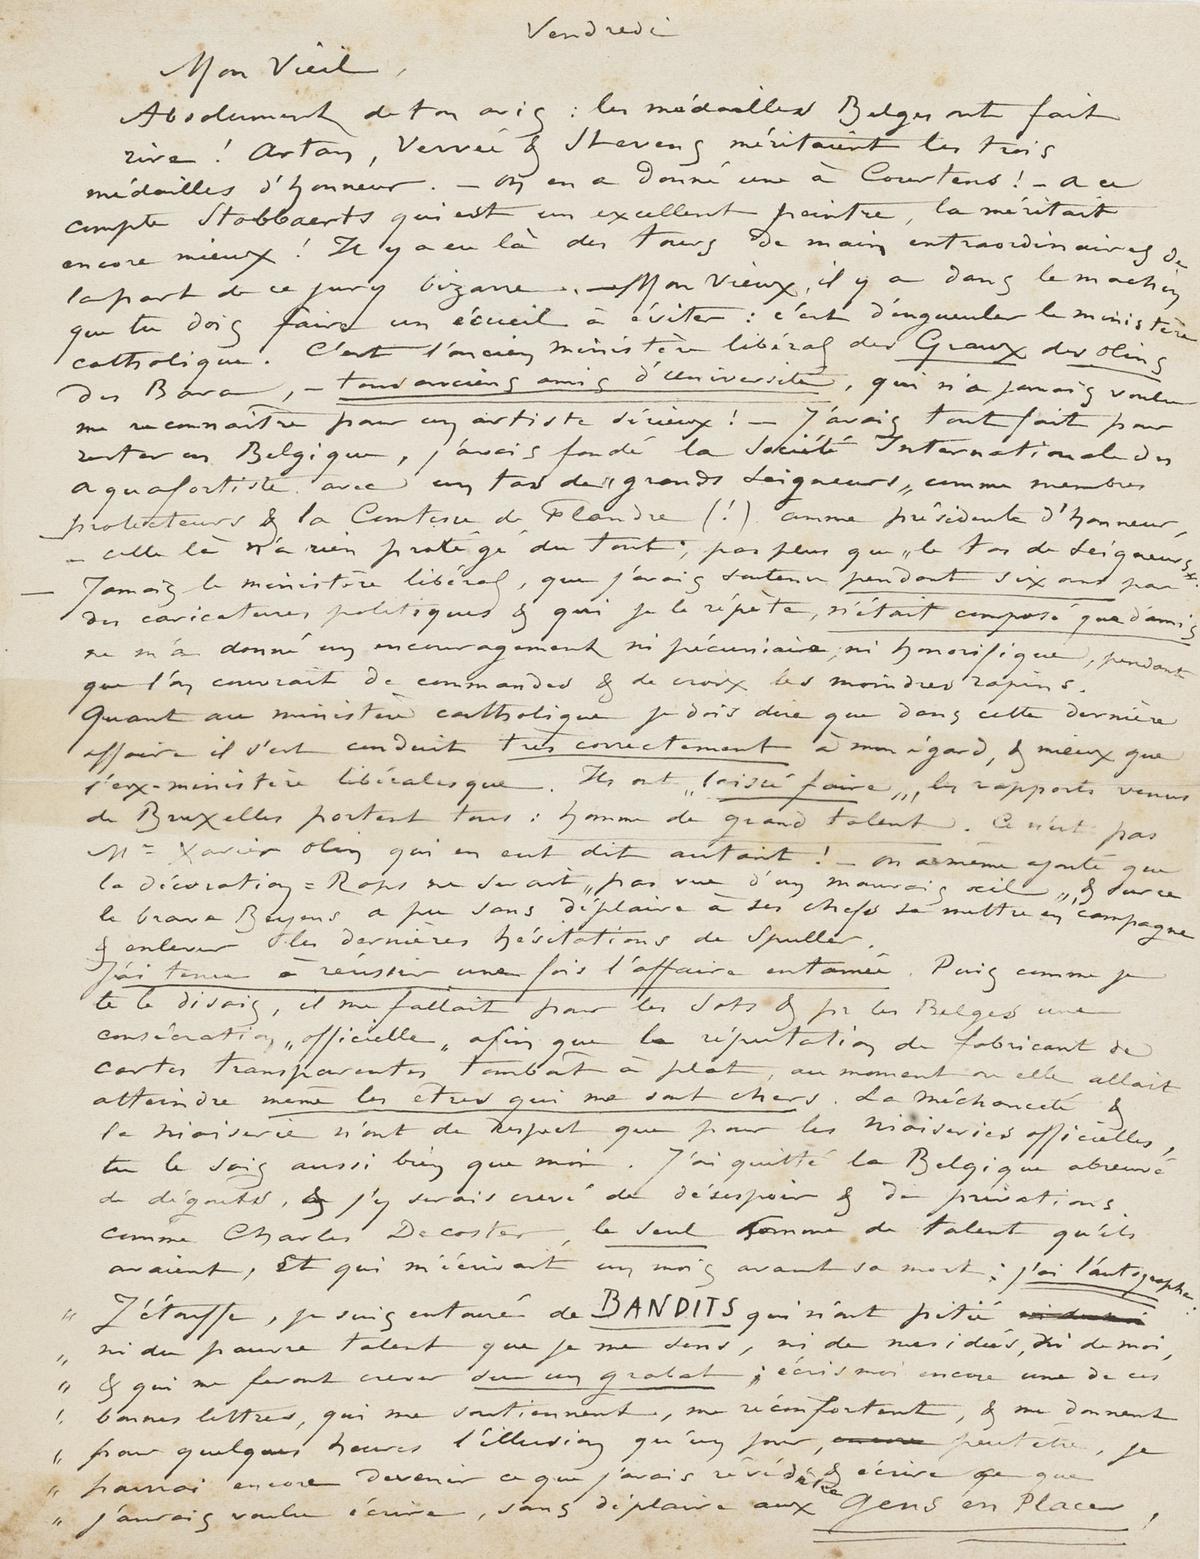 Vendredi
Mon Vieil,
Absolument de ton avis : les médailles Belges ont fait
rire ! Artan, Verwée & Stevens méritaient les trois
médailles d'honneur. – On en a donné une à Courtens ! – A ce
compte Stobbaerts qui est un excellent peintre, la méritait
encore mieux ! Il y a eu là des tours de main extraordinaires de
la part de ce jury bizarre. – Mon Vieux, il y a dans le machin
que tu dois faire un écueil à éviter : c'est d'engueuler le ministère
catholique. C'est l'ancien ministère libéral des Graux des Olin,
des Bara, – tous anciens amis d'Université, qui n'a jamais voulu
me reconnaître pour un artiste sérieux ! – J'avais tout fait pour
rester en Belgique, j'avais fondé la Société Internationale des
aquafortiste avec un tas de „grands Seigneurs„ comme membres
protecteurs & la Comtesse de Flandre (!) comme présidente d'honneur,
– celle là n'a rien protégé du tout, pas plus que „le tas de Seigneurs„.
– Jamais le ministère libéral, que j'avais soutenu pendant six ans par
des caricatures politiques & qui je le répète, n'était composé que d'amis
ne m'a donné un encouragement ni pécuniaire, ni honorifique, pendant
que l'on couvrait de commandes & de croix les moindres rapins.
Quant au ministère catholique je dois dire que dans cette dernière
affaire il s'est conduit très correctement à mon égard, & mieux que
l'ex-ministère libéralesque. Ils ont „laissé faire„, les rapports venus
de Bruxelles portent tous : homme de grand talent. Ce n'est pas
Mr Xavier Olin qui en eut dit autant ! – On a même ajouté que
la décoration = Rops ne serait „pas vue d'un mauvais œil„, & sur ce
le brave Beyens a pu sans déplaire à ses chefs se mettre en campagne
& enlever les dernières hésitations de Spuller.
J'ai tenu à réussir une fois l'affaire entamée. Puis comme je
te le disais, il me fallait pour les Sots & pr les Belges une
consécration „officielle„ afin que la réputation de fabricant de
cartes transparentes tombât à plat, au moment ou elle allait
atteindre même les êtres qui me sont chers. La méchanceté &
la niaiserie n'ont de respect que pour les niaiseries officielles,
tu le sais aussi bien que moi. J'ai quitté la Belgique abreuvé
de dégoûts, & j'y serais crevé de désespoir & de privations
comme Charles Decoster, le seul homme de talent qu'ils
avaient, Et qui m'écrivait un mois avant sa mort : j'ai l'autographe :
„ J'étouffe, je suis entouré de BANDITS qui n'ont pitié
„ ni du pauvre talent que je me sens, ni de mes idées, ni de moi,
„ & qui me feront crever sur un grabat ; écris moi encore une de ces
„ bonnes lettres, qui me soutiennent, me réconfortent, & me donnent
„ pour quelques heures l'illusion qu'un jour, encore peutêtre, je
„ pourrai encore devenir ce que j'avais rêvé d'être & écrire ce que
„ j'aurais voulu écrire, sans déplaire aux Gens en Place,